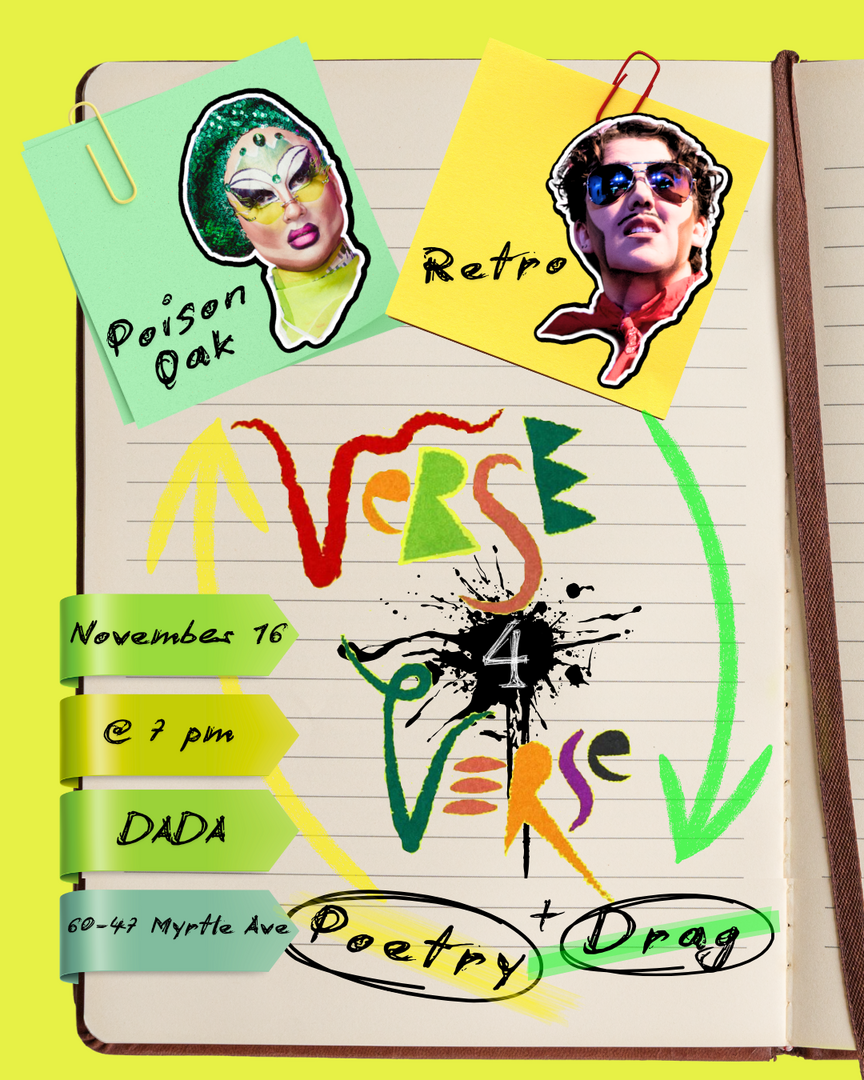 Poison
Oak
Retro
VERSE
4
VERSe
November 16
@ 7 pm
DADA
60-47 Myrtle Ave
Poetry + Drag